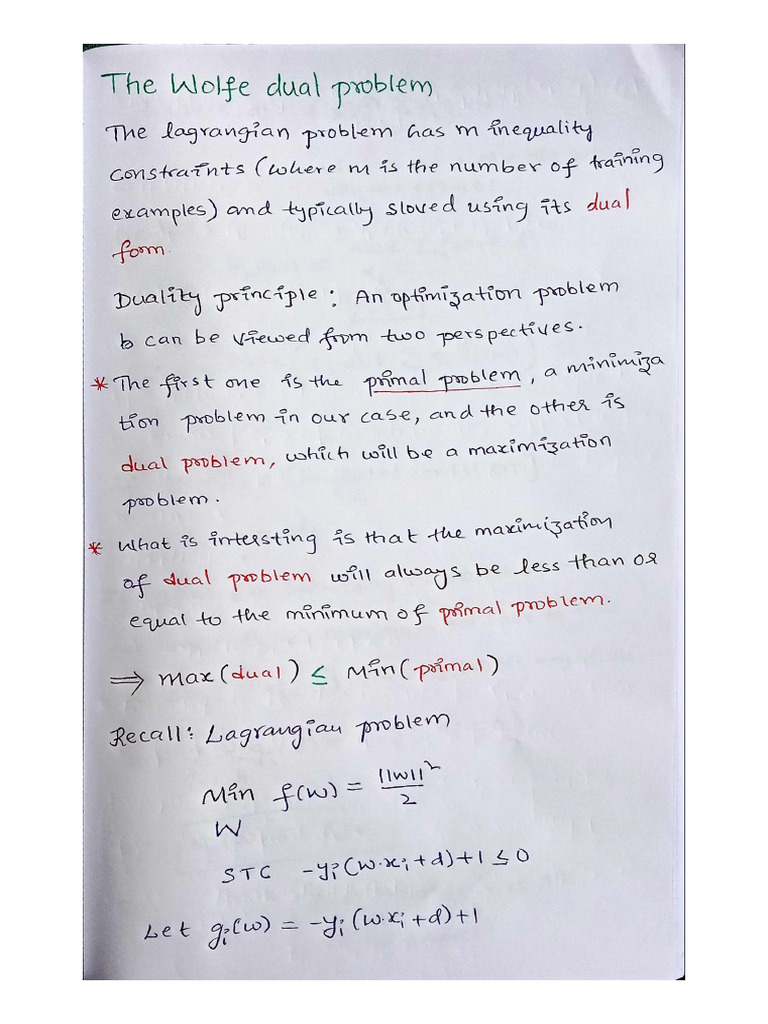 The Wolfe dual problem
The lagrangian problem has m inequality
constraints (where m is the number of training
examples) and typically sloved using its dual
form.
Duality principle: An optimization problem
b can be viewed from two perspectives.
* The first one is the primal problem, a minimiza
tion problem in our case, and the other is
dual problem, which will be a maximization
problem.
* What is intersting is that the maximization
of dual problem will always be less than or
equal to the minimum of primal problem.
⇒ max(dual) ≤ Min(primal)
Recall: Lagrangian problem
Min f(w) = ||w||²/2
W
STC -yi(w.xi+d)+1≤0
Let gi(w) = -yi(w.xi+d)+1